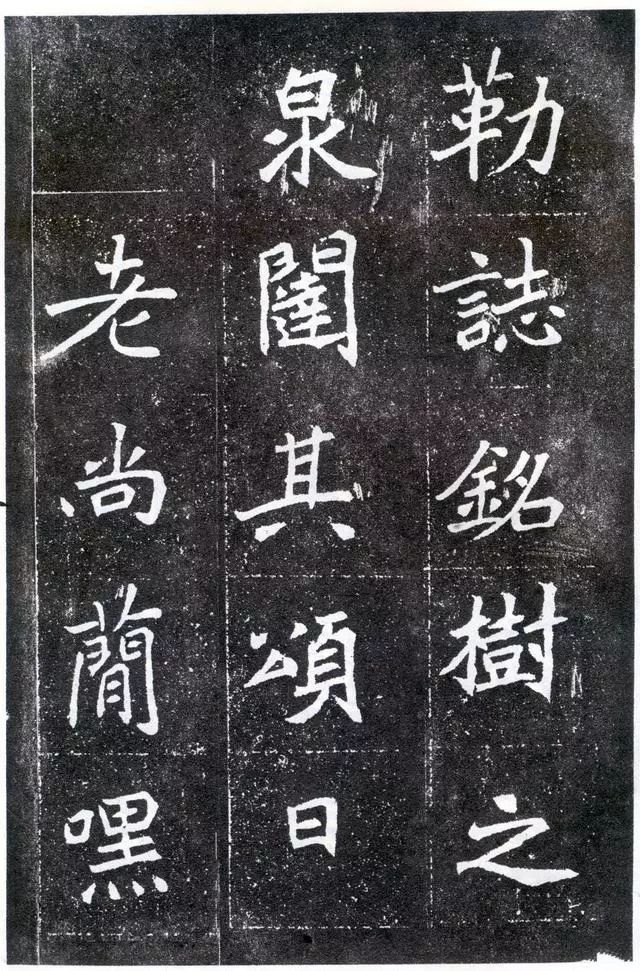 勒誌銘樹之
泉闥其頌曰
老尚蕑嘿